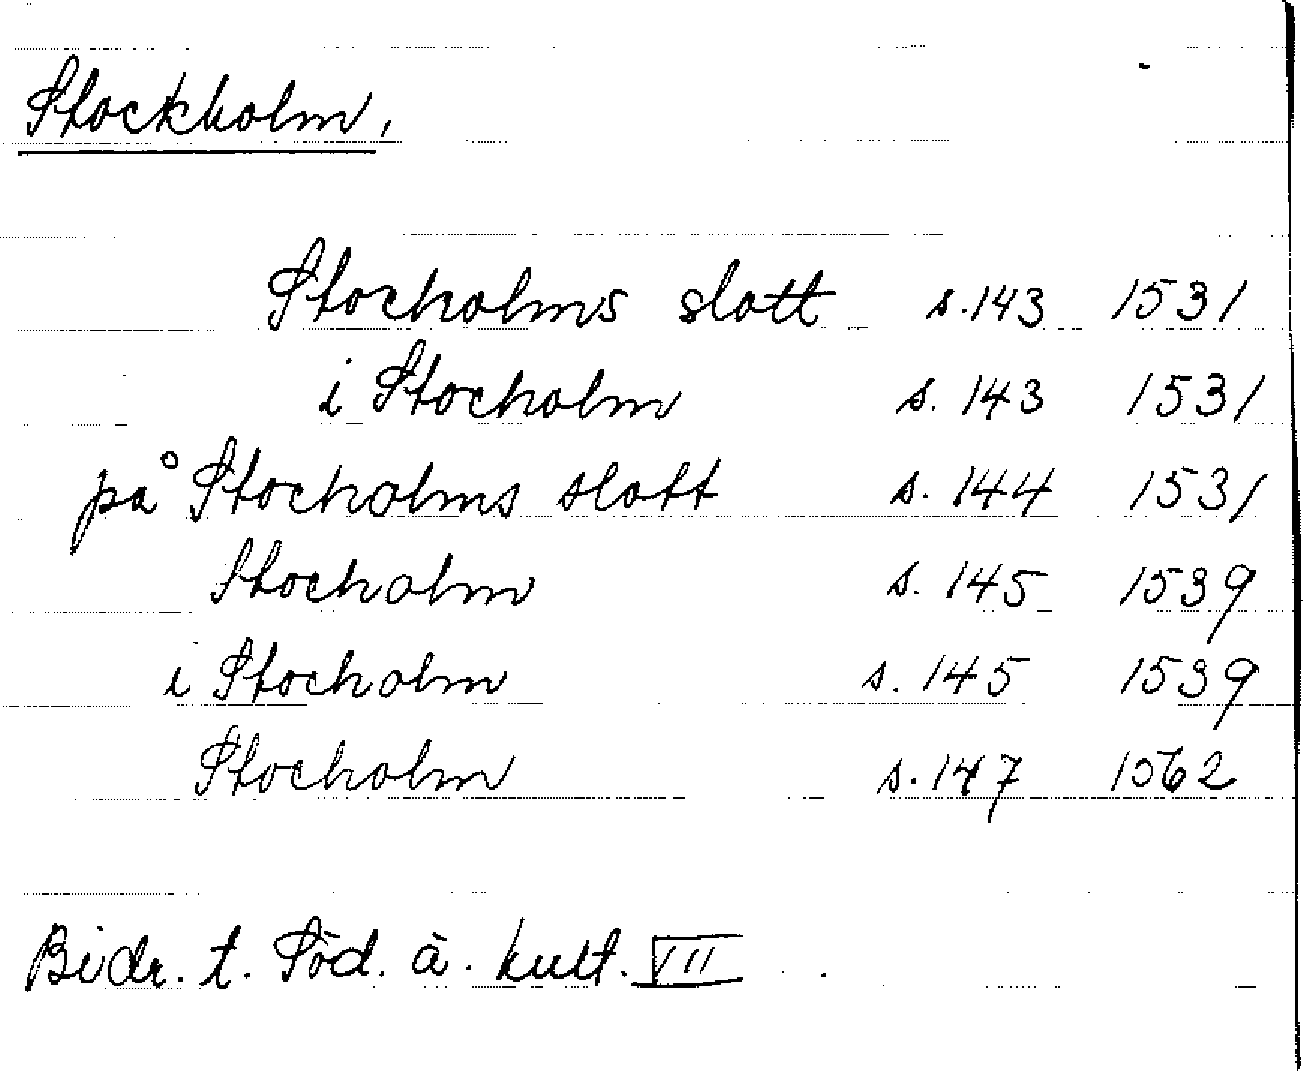 Stockholm,
Stocholms slott s.143 1531
i Stocholm s. 143 1531
på Stocholms slott s. 144 1531
Stocholm s. 145 1539
i Stocholm s. 145 1539
Stocholm s. 147 1562
Bidr. t. Söd. ä. kult. VII